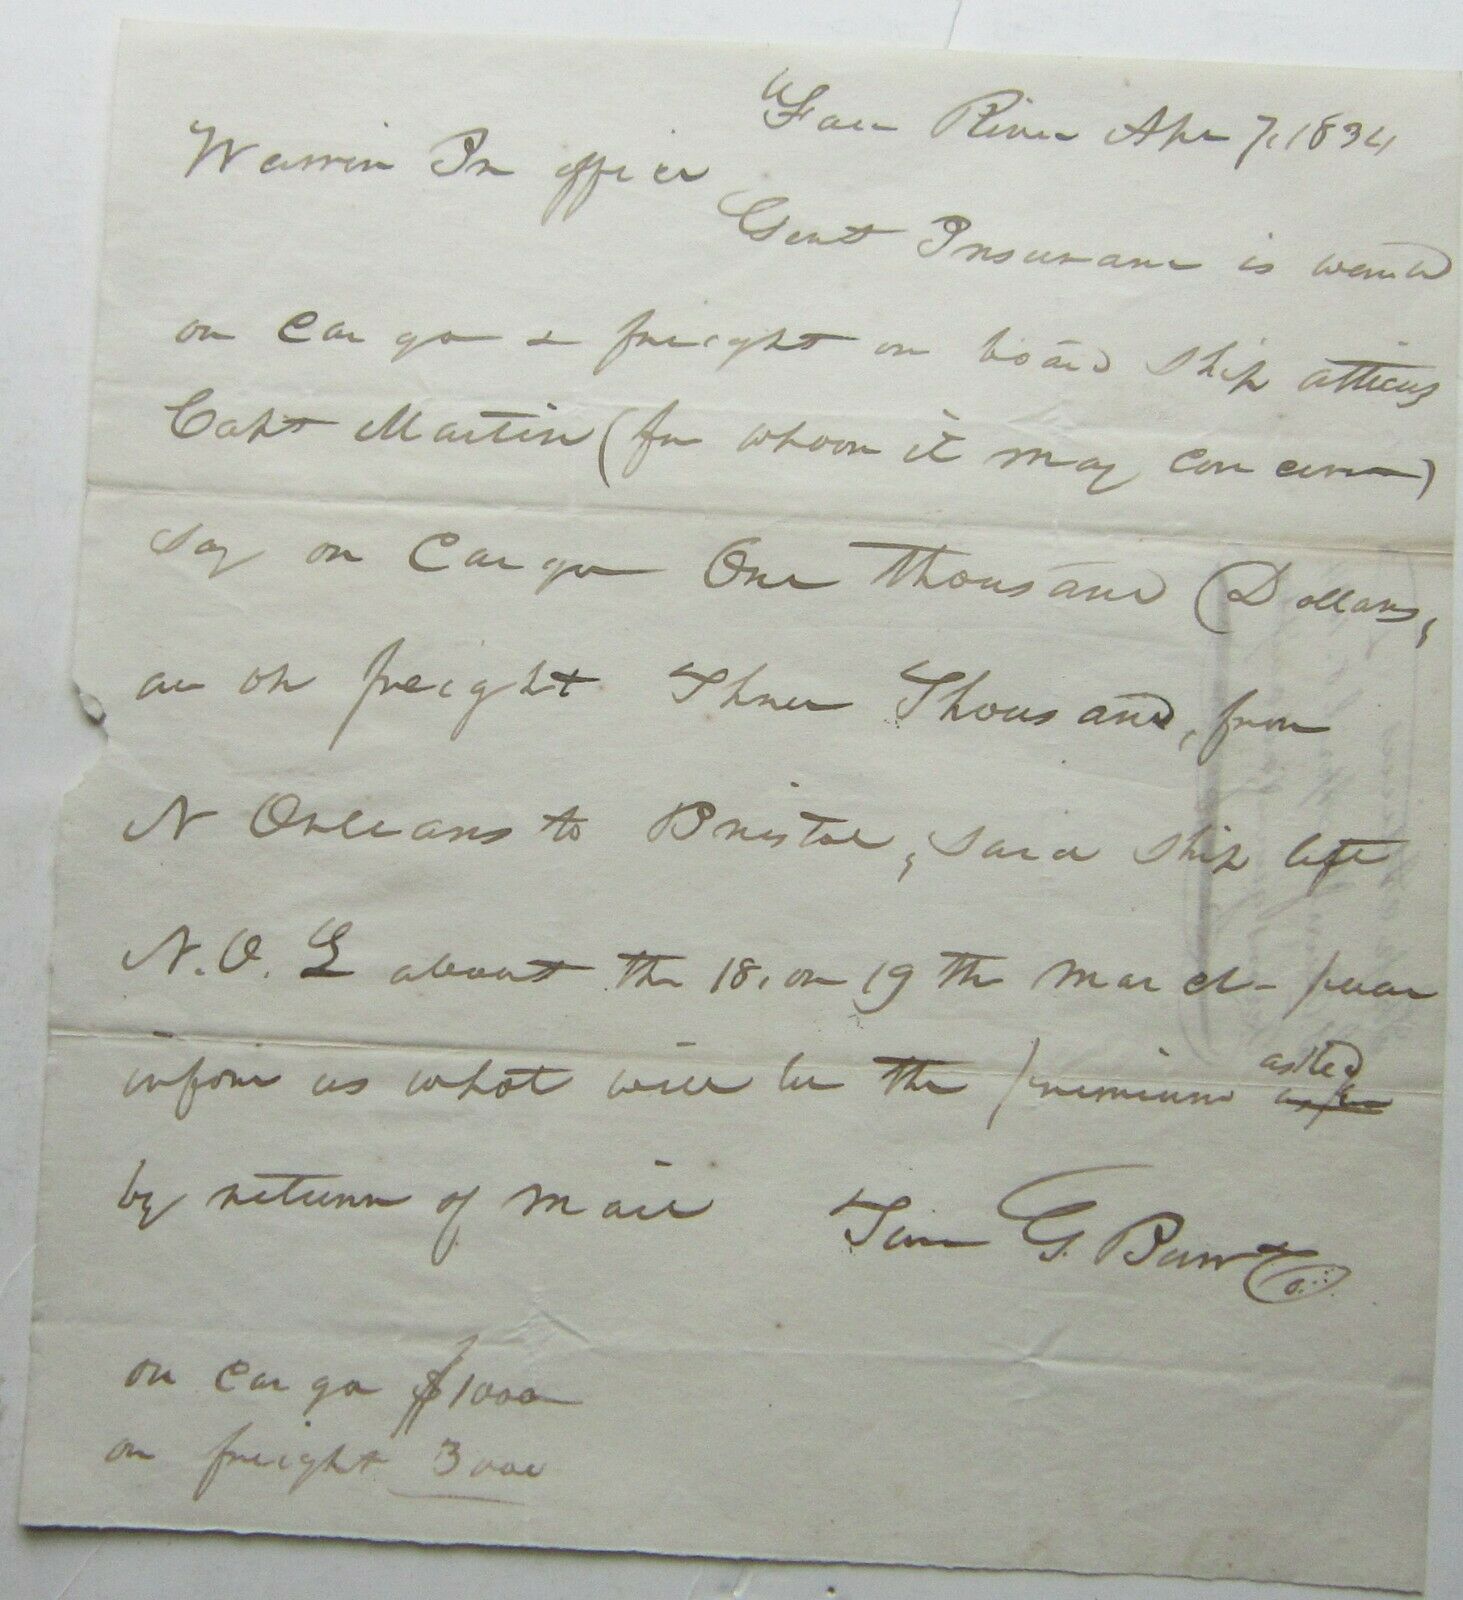 Fall River Apr 7, 1834
Warren In office
Gent Insurance is wanted
on Cargo & freight on board Ship Atticus
Capt Martin (for whom it may concern)
Say on Cargo One Thousand Dollars,
on freight Three Thousand, from
N Orleans to Bristol, said ship left
N. O. about the 18, or 19th March
inform us what will be the premium asked
by return of mail
G. Barr
on cargo $1000
on freight 3000